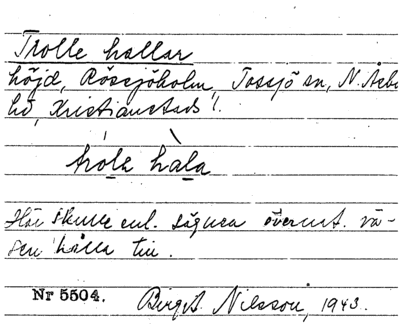 Trolle hallar
höjd, Rössjöholm, Tossjö sn, N. Åsbo
hd, Kristianstads l.
tróla hàla
Här skulle enl. sägnen övernat. vä-
sen hålla till.
Nr 5504. Birgit Nilsson, 1943.